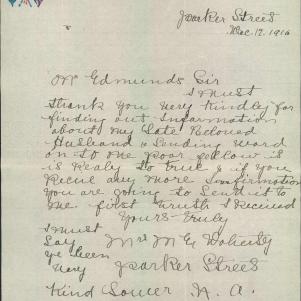 Parker Street
Dec. 12. 1916
Mr Edmunds Sir
I must
thank you very kindly for
finding out Information
about my late Beloved
Husband & sending word
on to me poor fellow is
is Really to true & if you
Recive any more Confirmation
you are going to send it to
me first truth I Received
Yours Truly
I must
Say
ye been
very
kind
Mrs M G Doherty
Parker Street
Lower N. A.